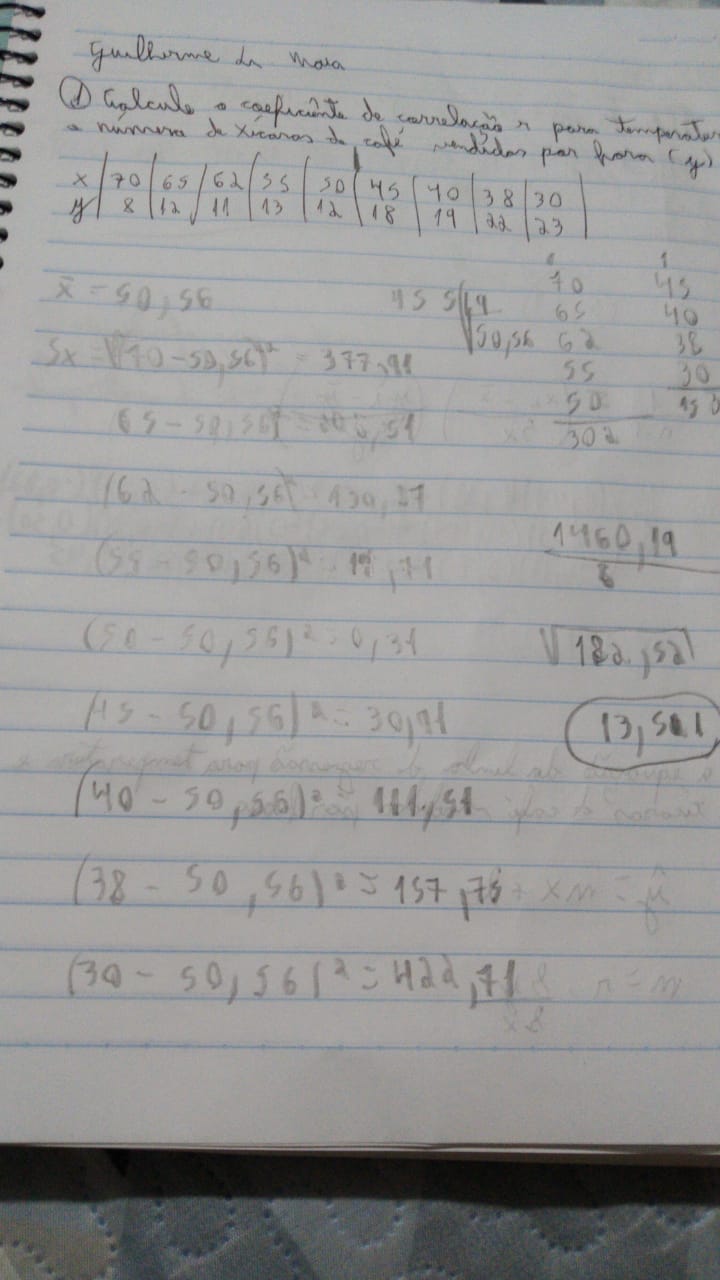 Guilherme da Maia
① Calcule o coeficiênte de correlação r para temperatur
e número de xícaras de café vendidas por hora (y)
x 70 65 62 55 50 45 40 38 30
y 8 12 11 13 12 18 19 22 23
x̄ = 50,56
455 9
50,56
70 45
65 40
62 38
55 30
50 153
302
Sx = √(70-50,56)² = 377,91
65-50,56)² = 208,51
(62-50,56)² = 130,87
(55-50,56)² = 19,71
(50-50,56)² = 0,31
(45-50,56)² = 30,91
(40-50,56)² = 111,51
(38-50,56)² = 157,75
(30-50,56)² = 422,71
1460,19
8
√182,52
13,511